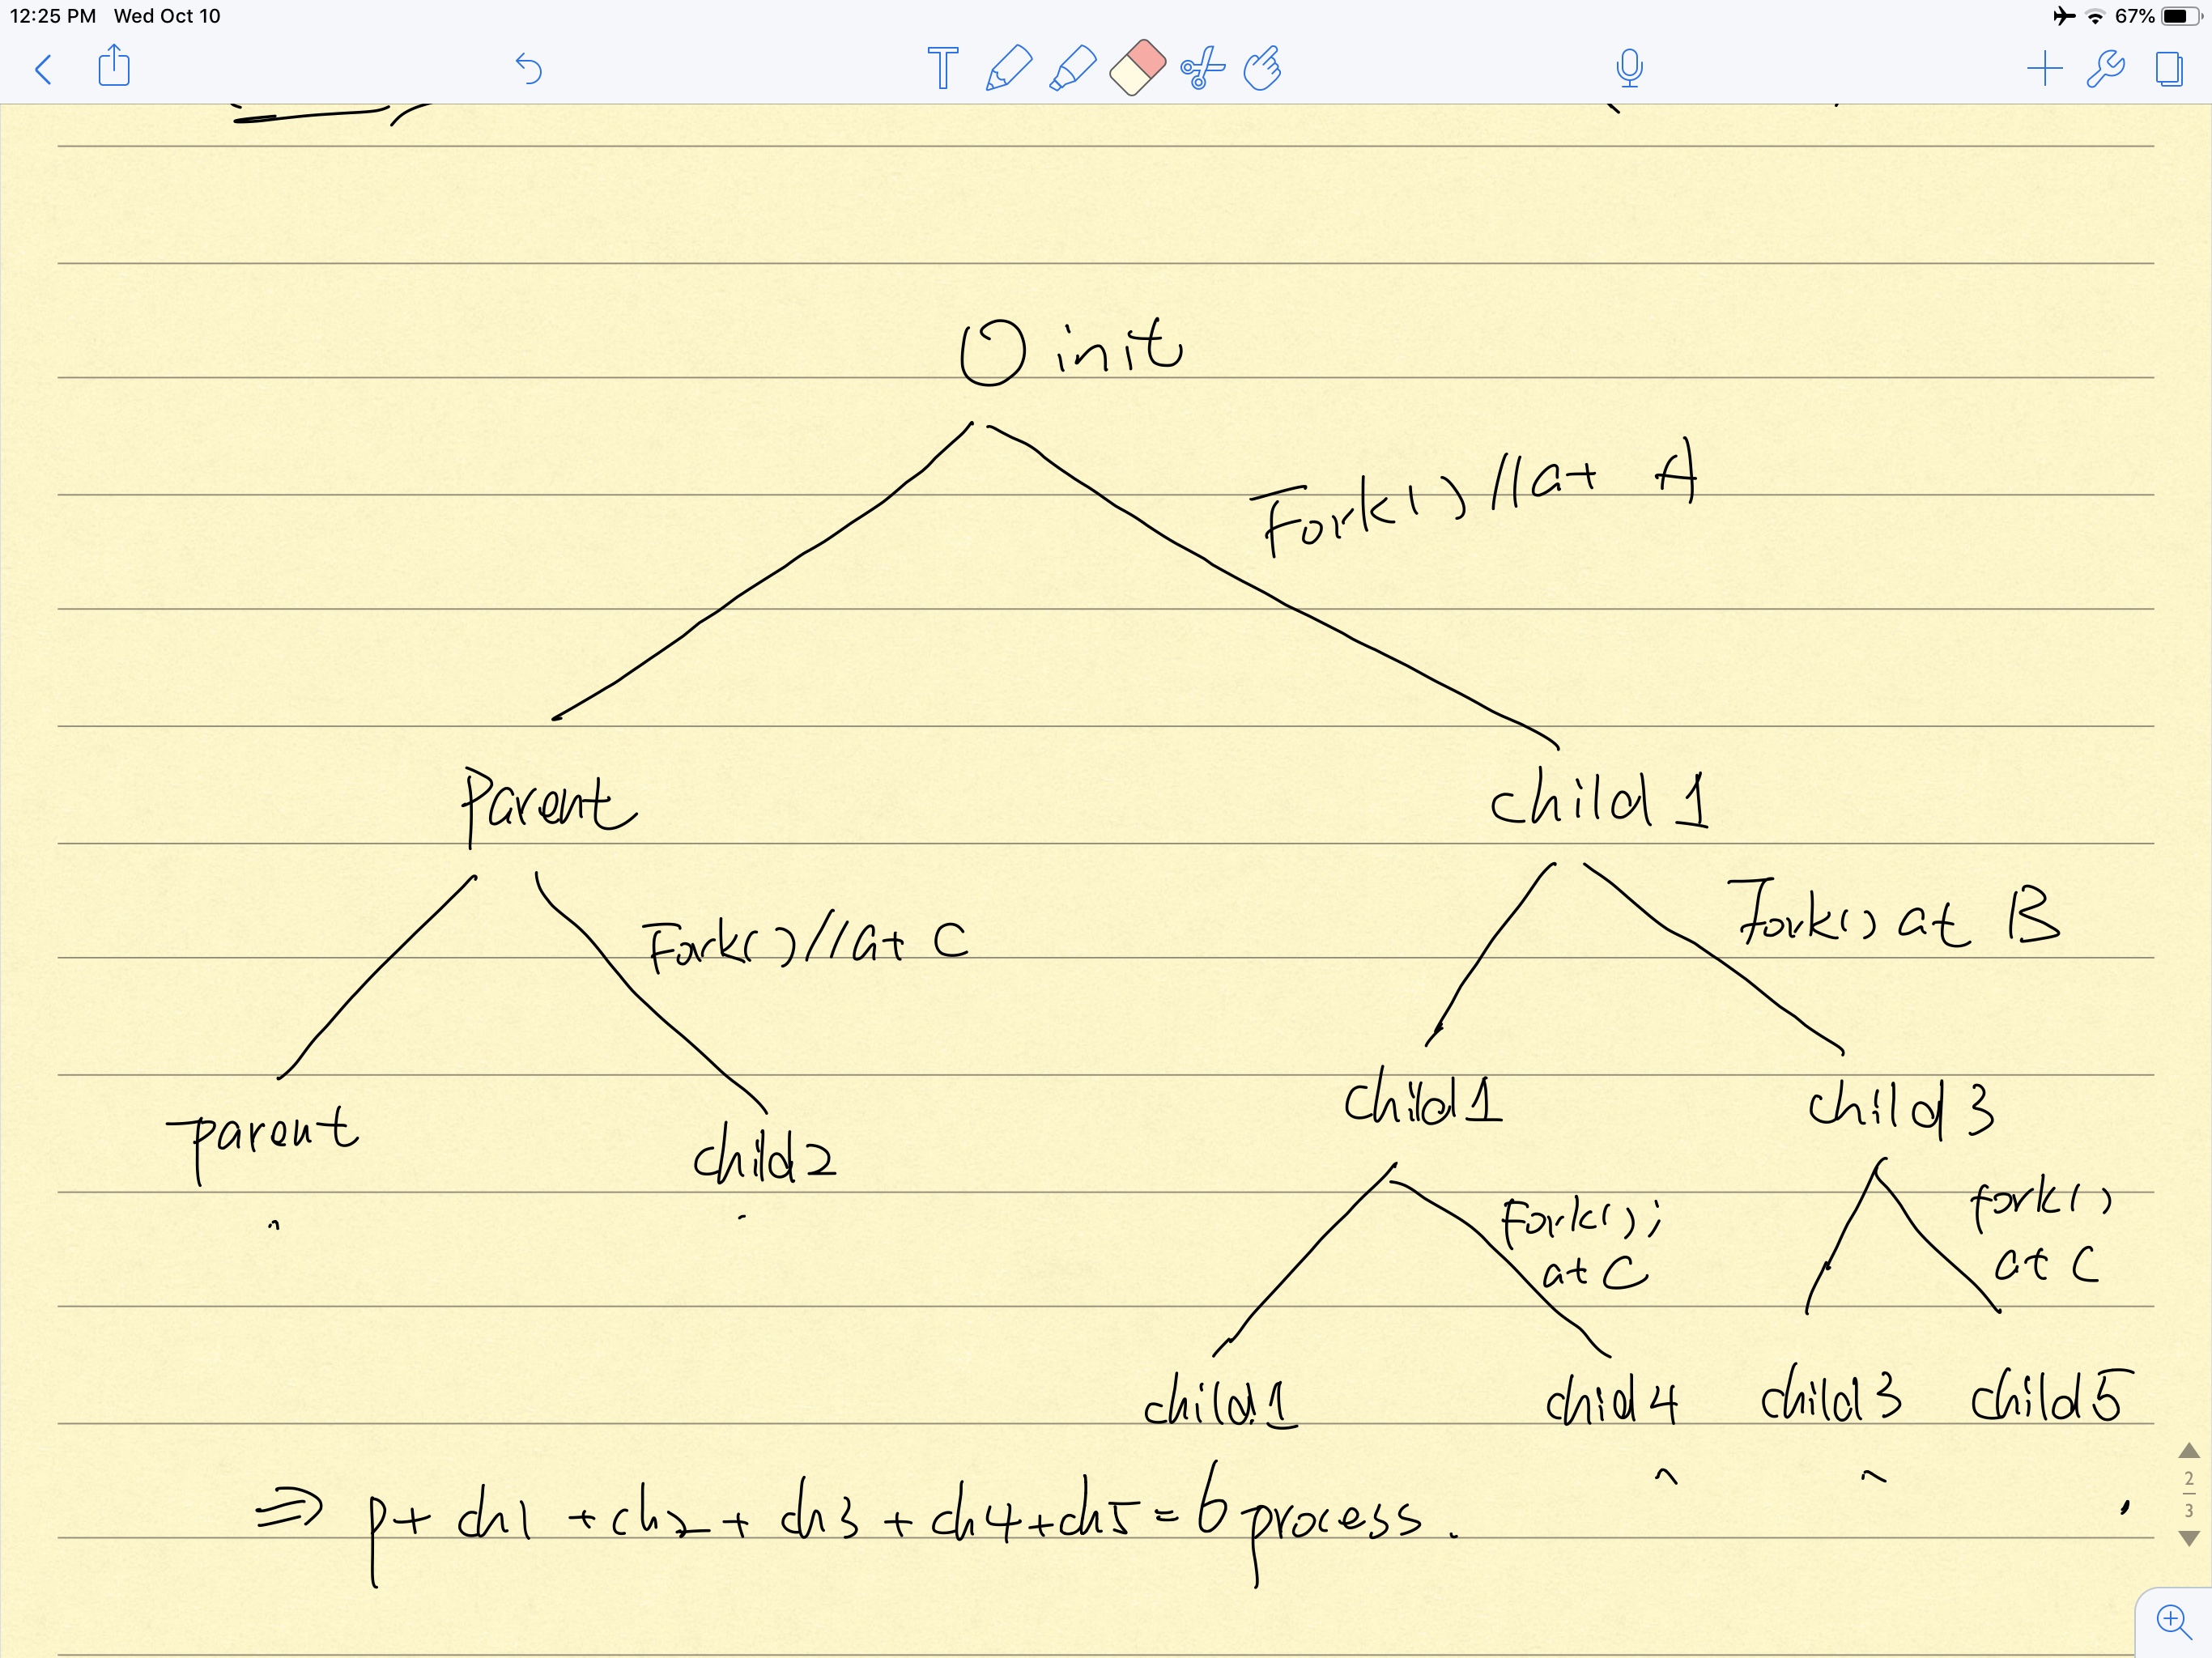 12:25 PM Wed Oct 10 67%
O init
Fork() //at A
Parent
child 1
Fork() //at C
Fork() at B
parent
child2
child1
child 3
Fork();
at C
fork()
at C
child1
chid 4
child3
child5
⇒ p+ ch1 + ch2 + ch3 + ch4 + ch5 = 6 process.
2
3